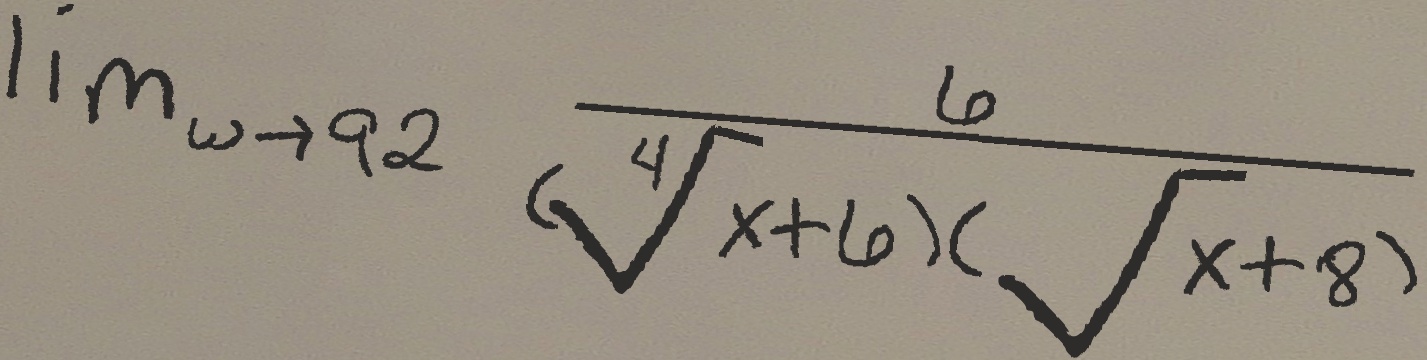 lim_{w→92} \frac{6}{(\sqrt[4]{x+6})(\sqrt{x+8})}